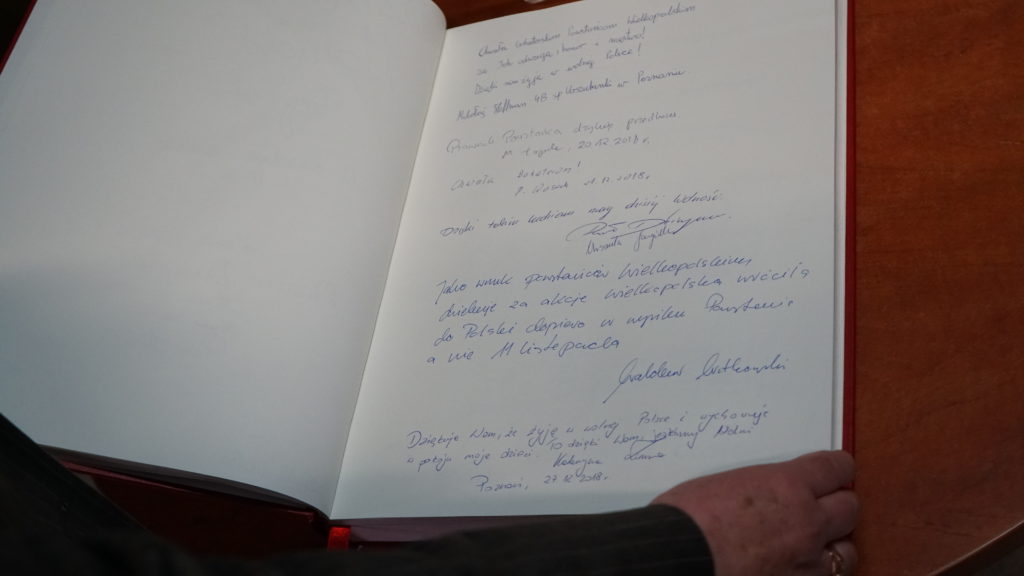 Chwała bohaterskim Powstańcom Wielkopolskim
za Ich odwagę, honor i męstwo!
Dzięki nim żyję w wolnej Polsce!
Mikołaj Hoffman 4B sp Urszulanki w Poznaniu.
Prawnuk Powstańca dziękuję przodkom
20.12.2018 r.
Chwała Bohaterom!
21.12.2018r.
Dzięki takim ludziom mamy dzisiaj wolność.
Jako wnuk powstańców Wielkopolskich
dziękuję za akcję Wielkopolska wróciła
do Polski dopiero w wyniku Powstania
a nie 11 listopada
Waldemar Witkowski
Dziękuję Wam, że żyję w wolnej Polsce i wychowuję
w pokoju moje dzieci. To dzięki Wam jesteśmy wolni
Katarzyna
Poznań, 27.12.2018r.